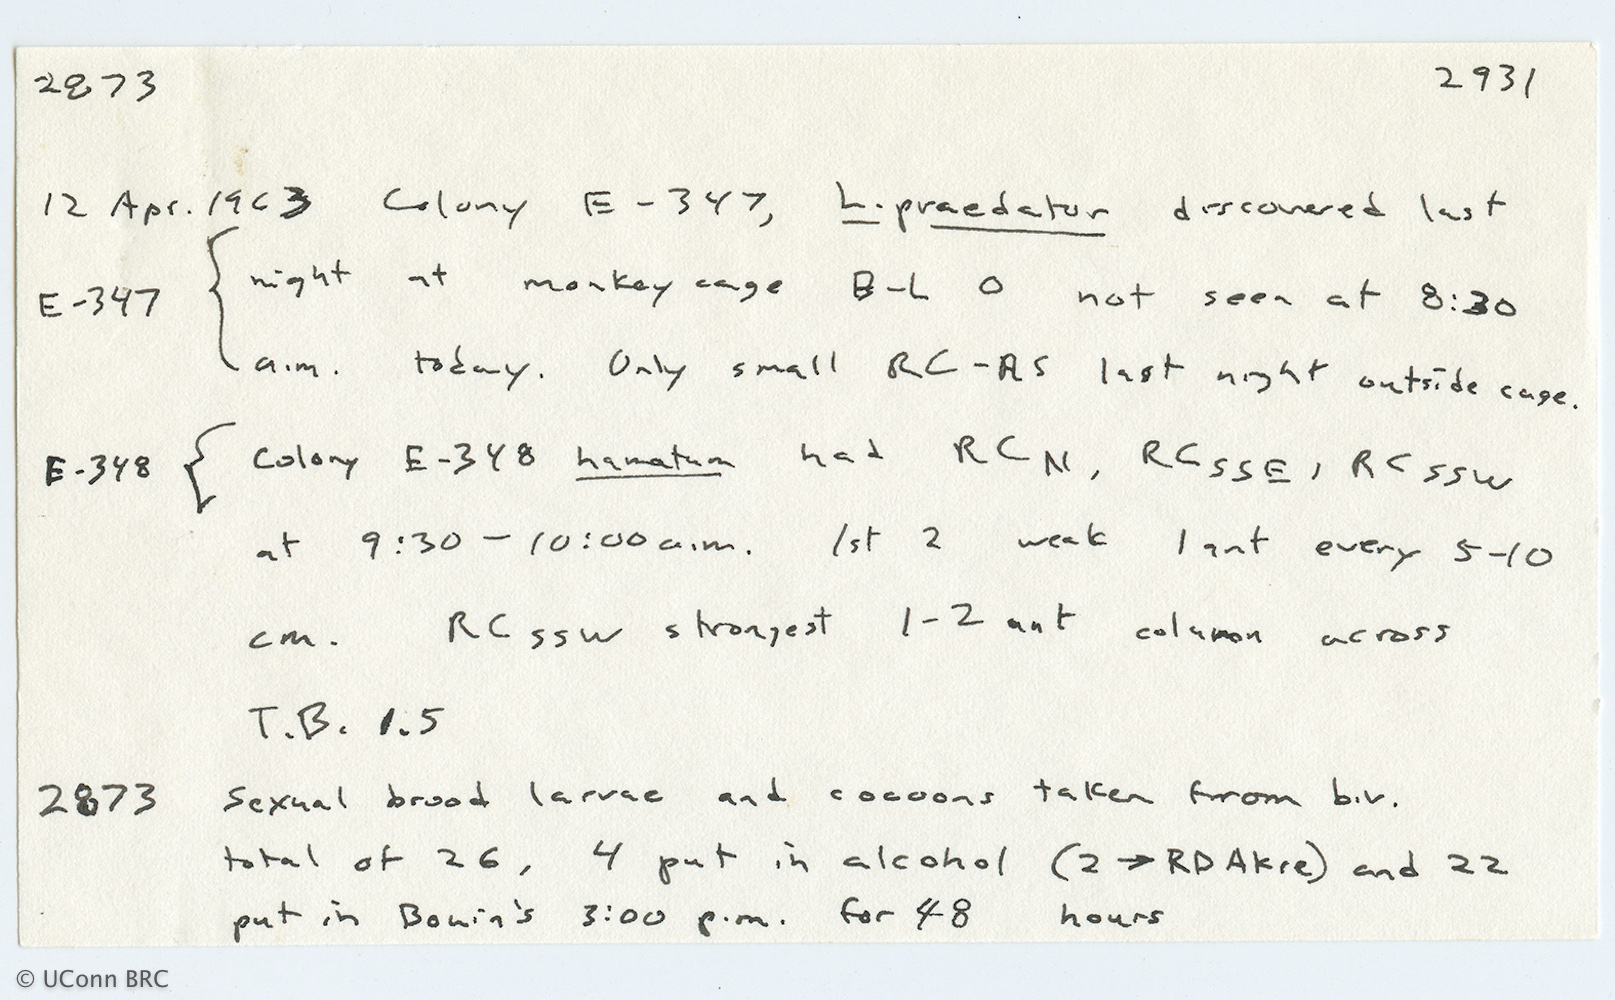 2873 2931
12 Apr. 1963 Colony E-347, L. praedator discovered last
E-347 night at monkey cage B-L 0 not seen at 8:30
a.m. today. Only small RC-RS last night outside cage.
E-348 Colony E-348 hamatum had RC N, RC SSE, RC SSW
at 9:30 - 10:00 a.m. 1st 2 weak 1 ant every 5-10
cm. RC SSW strongest 1-2 ant column across
T.B. 1.5
2873 Sexual brood larvae and cocoons taken from biv.
total of 26, 4 put in alcohol (2 → RD Akre) and 22
put in Bouin's 3:00 p.m. for 48 hours
© UConn BRC